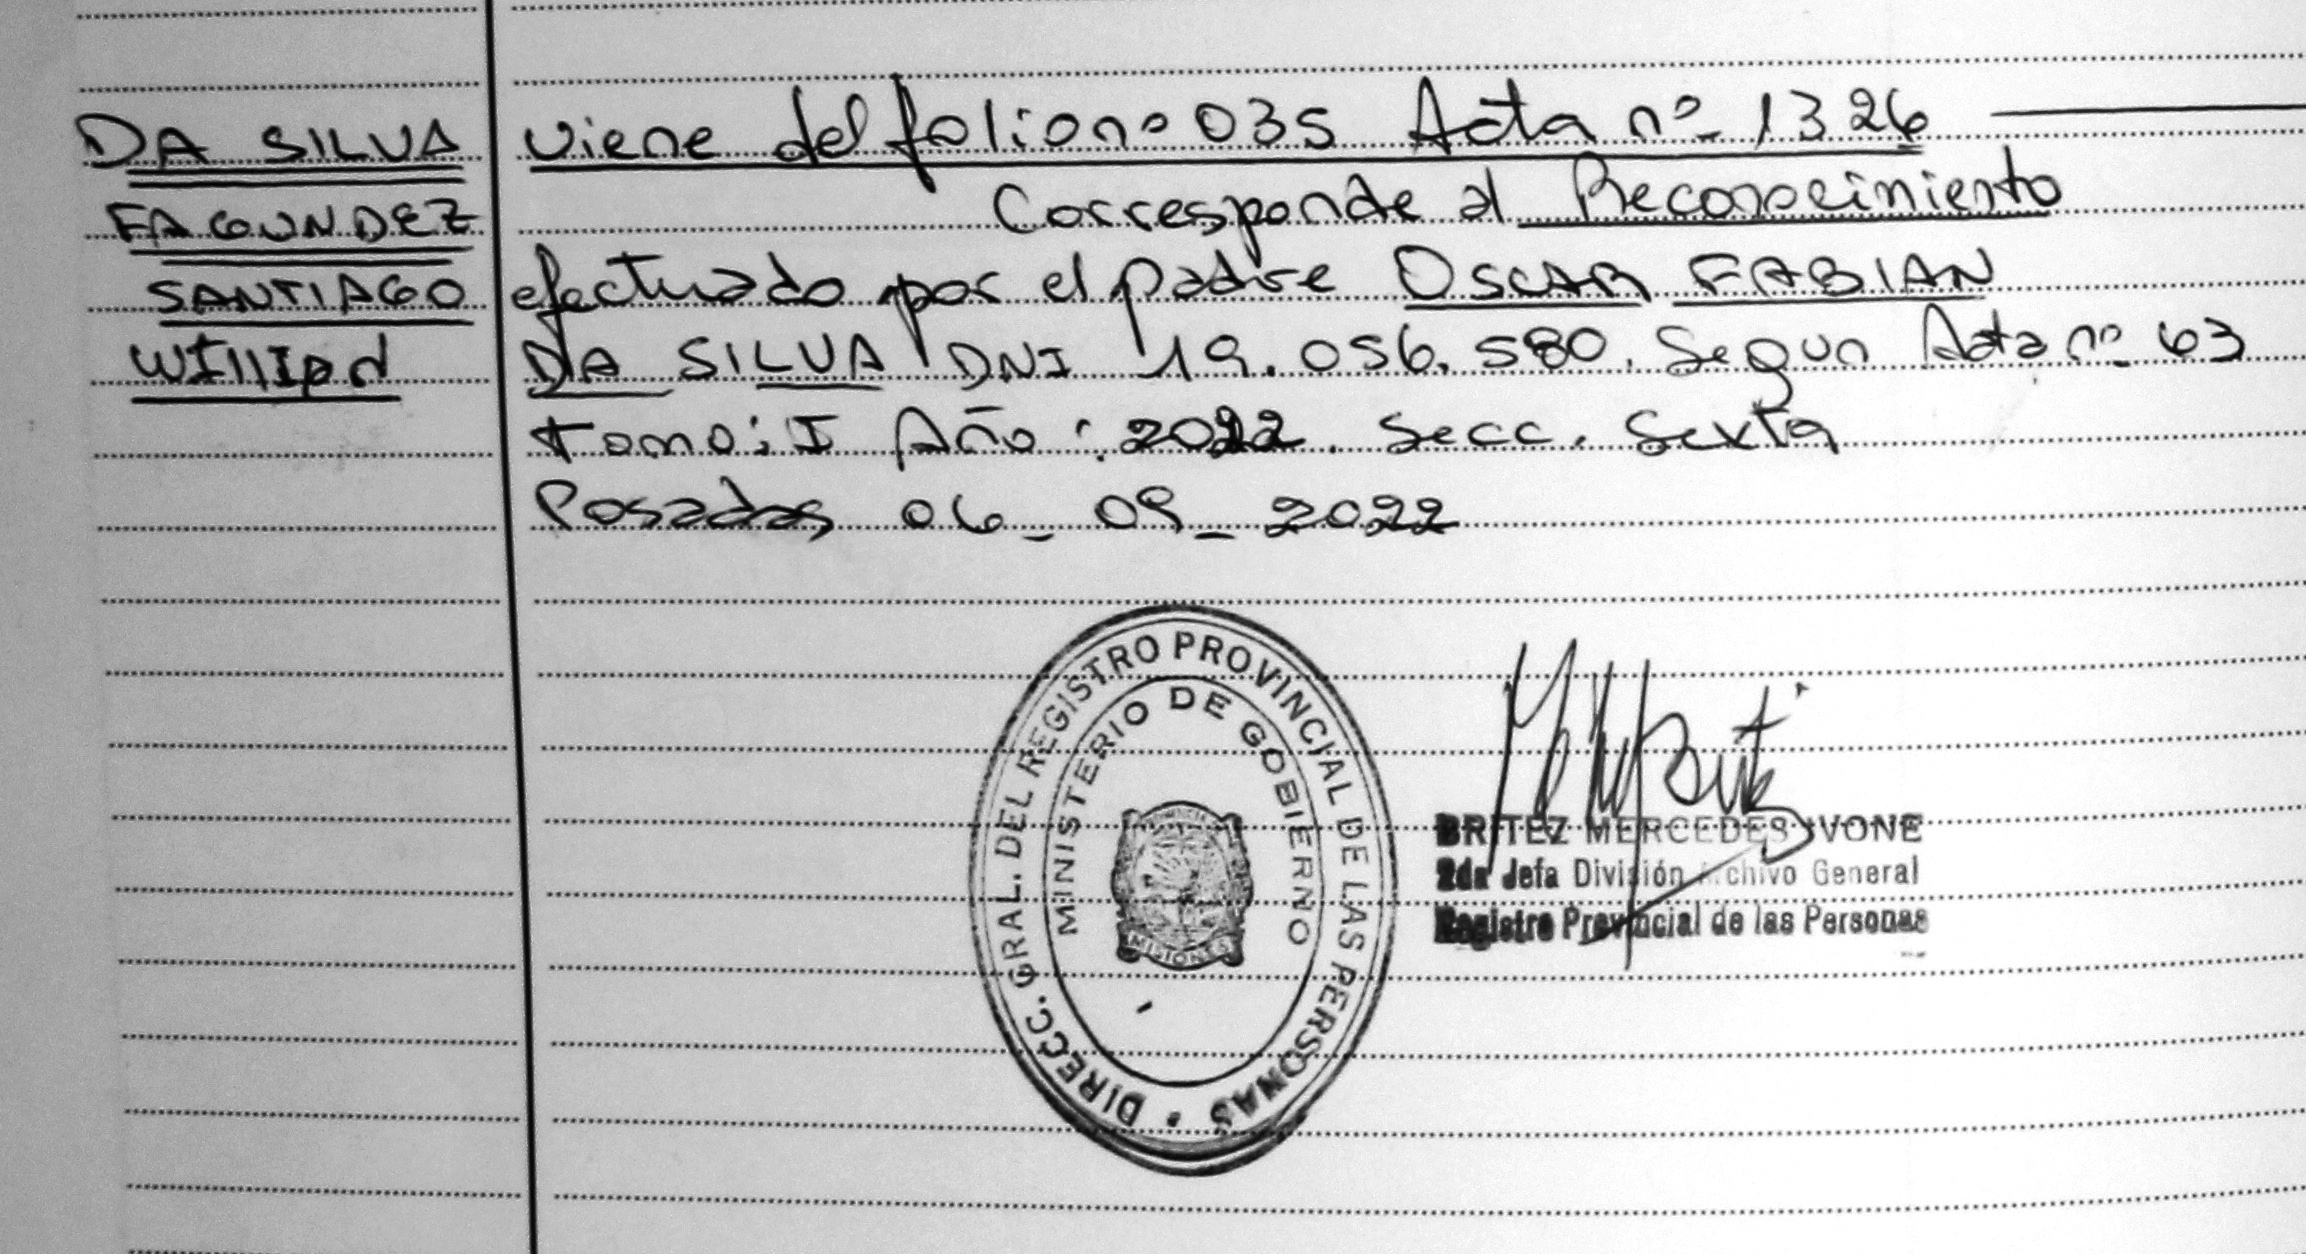 DA SILVA
FAGUNDEZ
SANTIAGO
WIllIAN
Viene del folio nº 035 Acta nº 1326
Corresponde al Reconocimiento
efectuado por el padre OSCAR FABIAN
DA SILVA DNI 19.056.580. Segun Acta nº 63
tomo: I Año: 2022. Secc. Sexta
Posadas 06_09_2022
DIRECC. GRAL. DEL REGISTRO PROVINCIAL DE LAS PERSONAS
MINISTERIO DE GOBIERNO
MISIONES
BRITEZ MERCEDES IVONE
2da Jefa División Archivo General
Registro Provincial de las Personas